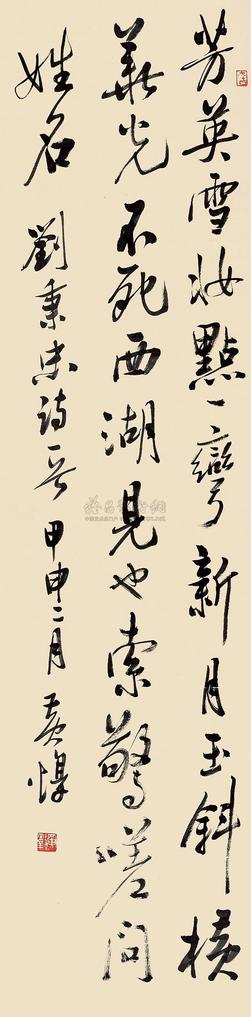 芳英雪妝點一彎新月玉斜橫
華光不死西湖見也索驚嗟問
姓名 劉秉忠詩一首 甲申二月 黃惇